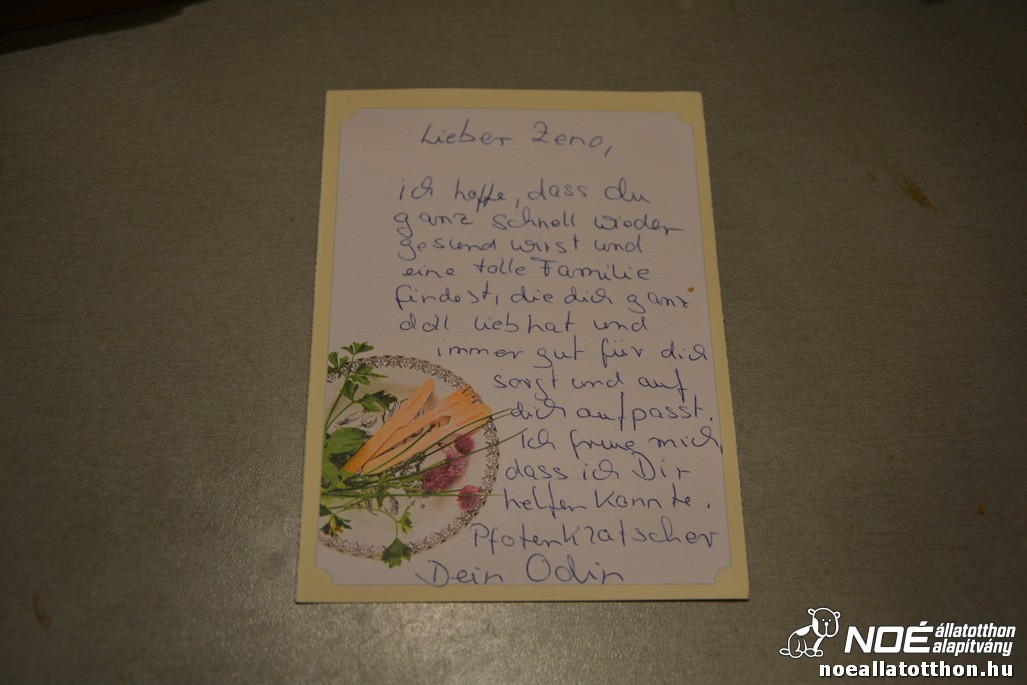 Lieber Zeno,
ich hoffe, dass du
ganz schnell wieder
gesund wirst und
eine tolle Familie
findest, die dich ganz
doll lieb hat und
immer gut für dich
sorgt und auf
dich aufpasst.
Ich freue mich,
dass ich Dir
helfen konnte.
Pfotenklatscher
Dein Odin
NOÉ állatotthon
alapítvány
noeallatotthon.hu